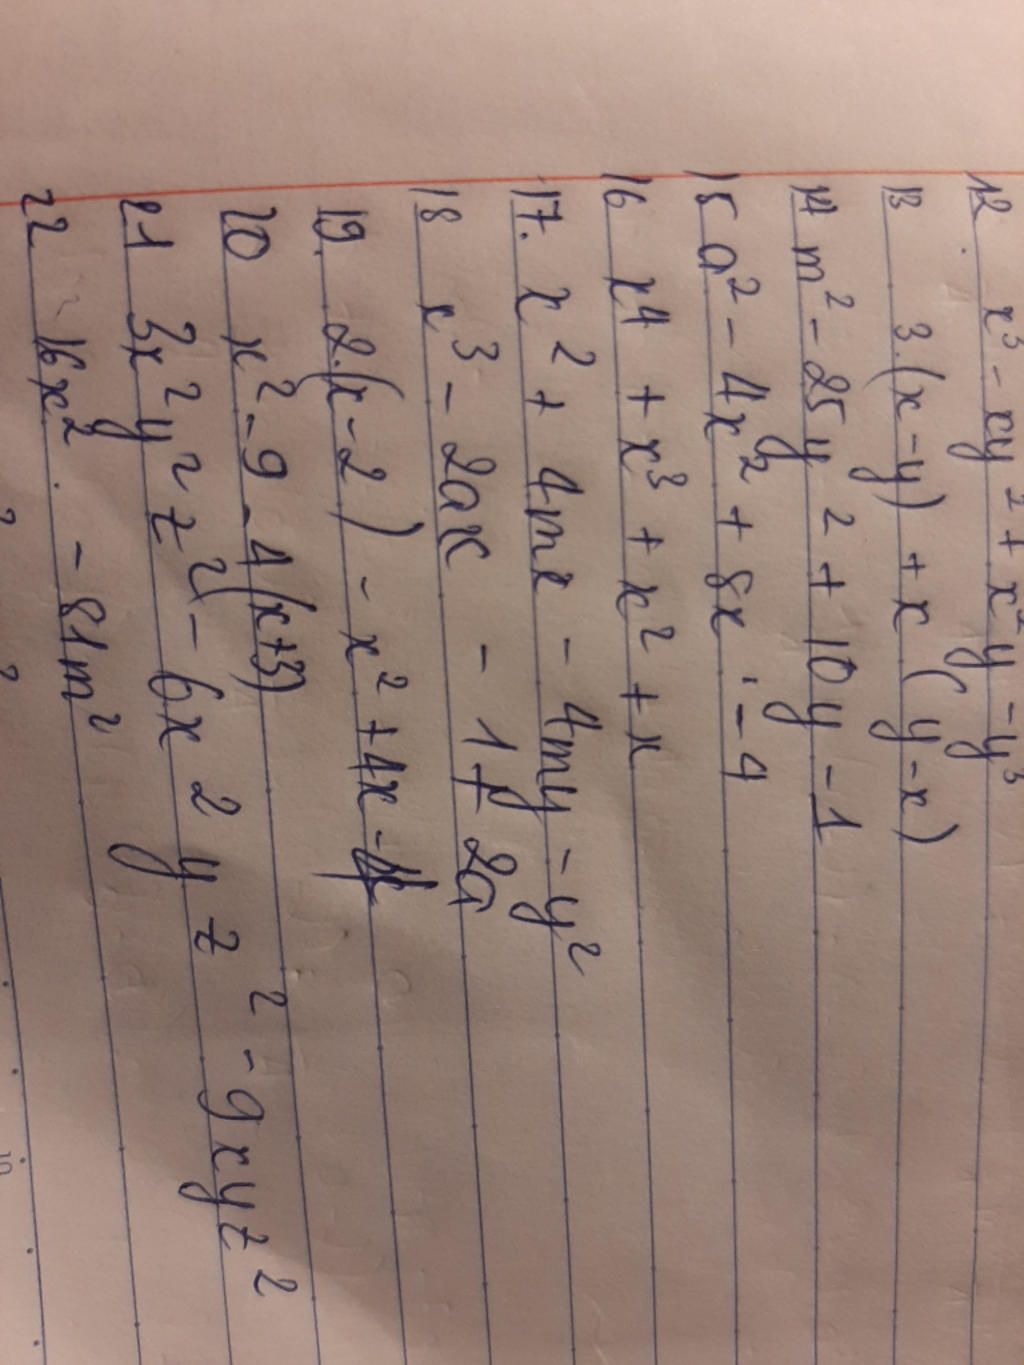 12. x³ - xy² + x²y - y³
13 3.(x-y) + x (y-x)
14 m² - 25y² + 10y - 1
15 a² - 4x² + 8x - 4
16 x⁴ + x³ + x² + x
17. x² + 4mx - 4my - y²
18 x³ - 2ax - 1 + 2a
19. 2.(x-2) - x² + 4x - 4
20 x² - 9 - 4(x+3)
21 3x²y²z² - 6x2yz² - 9xyz²
22 16x² - 81m²